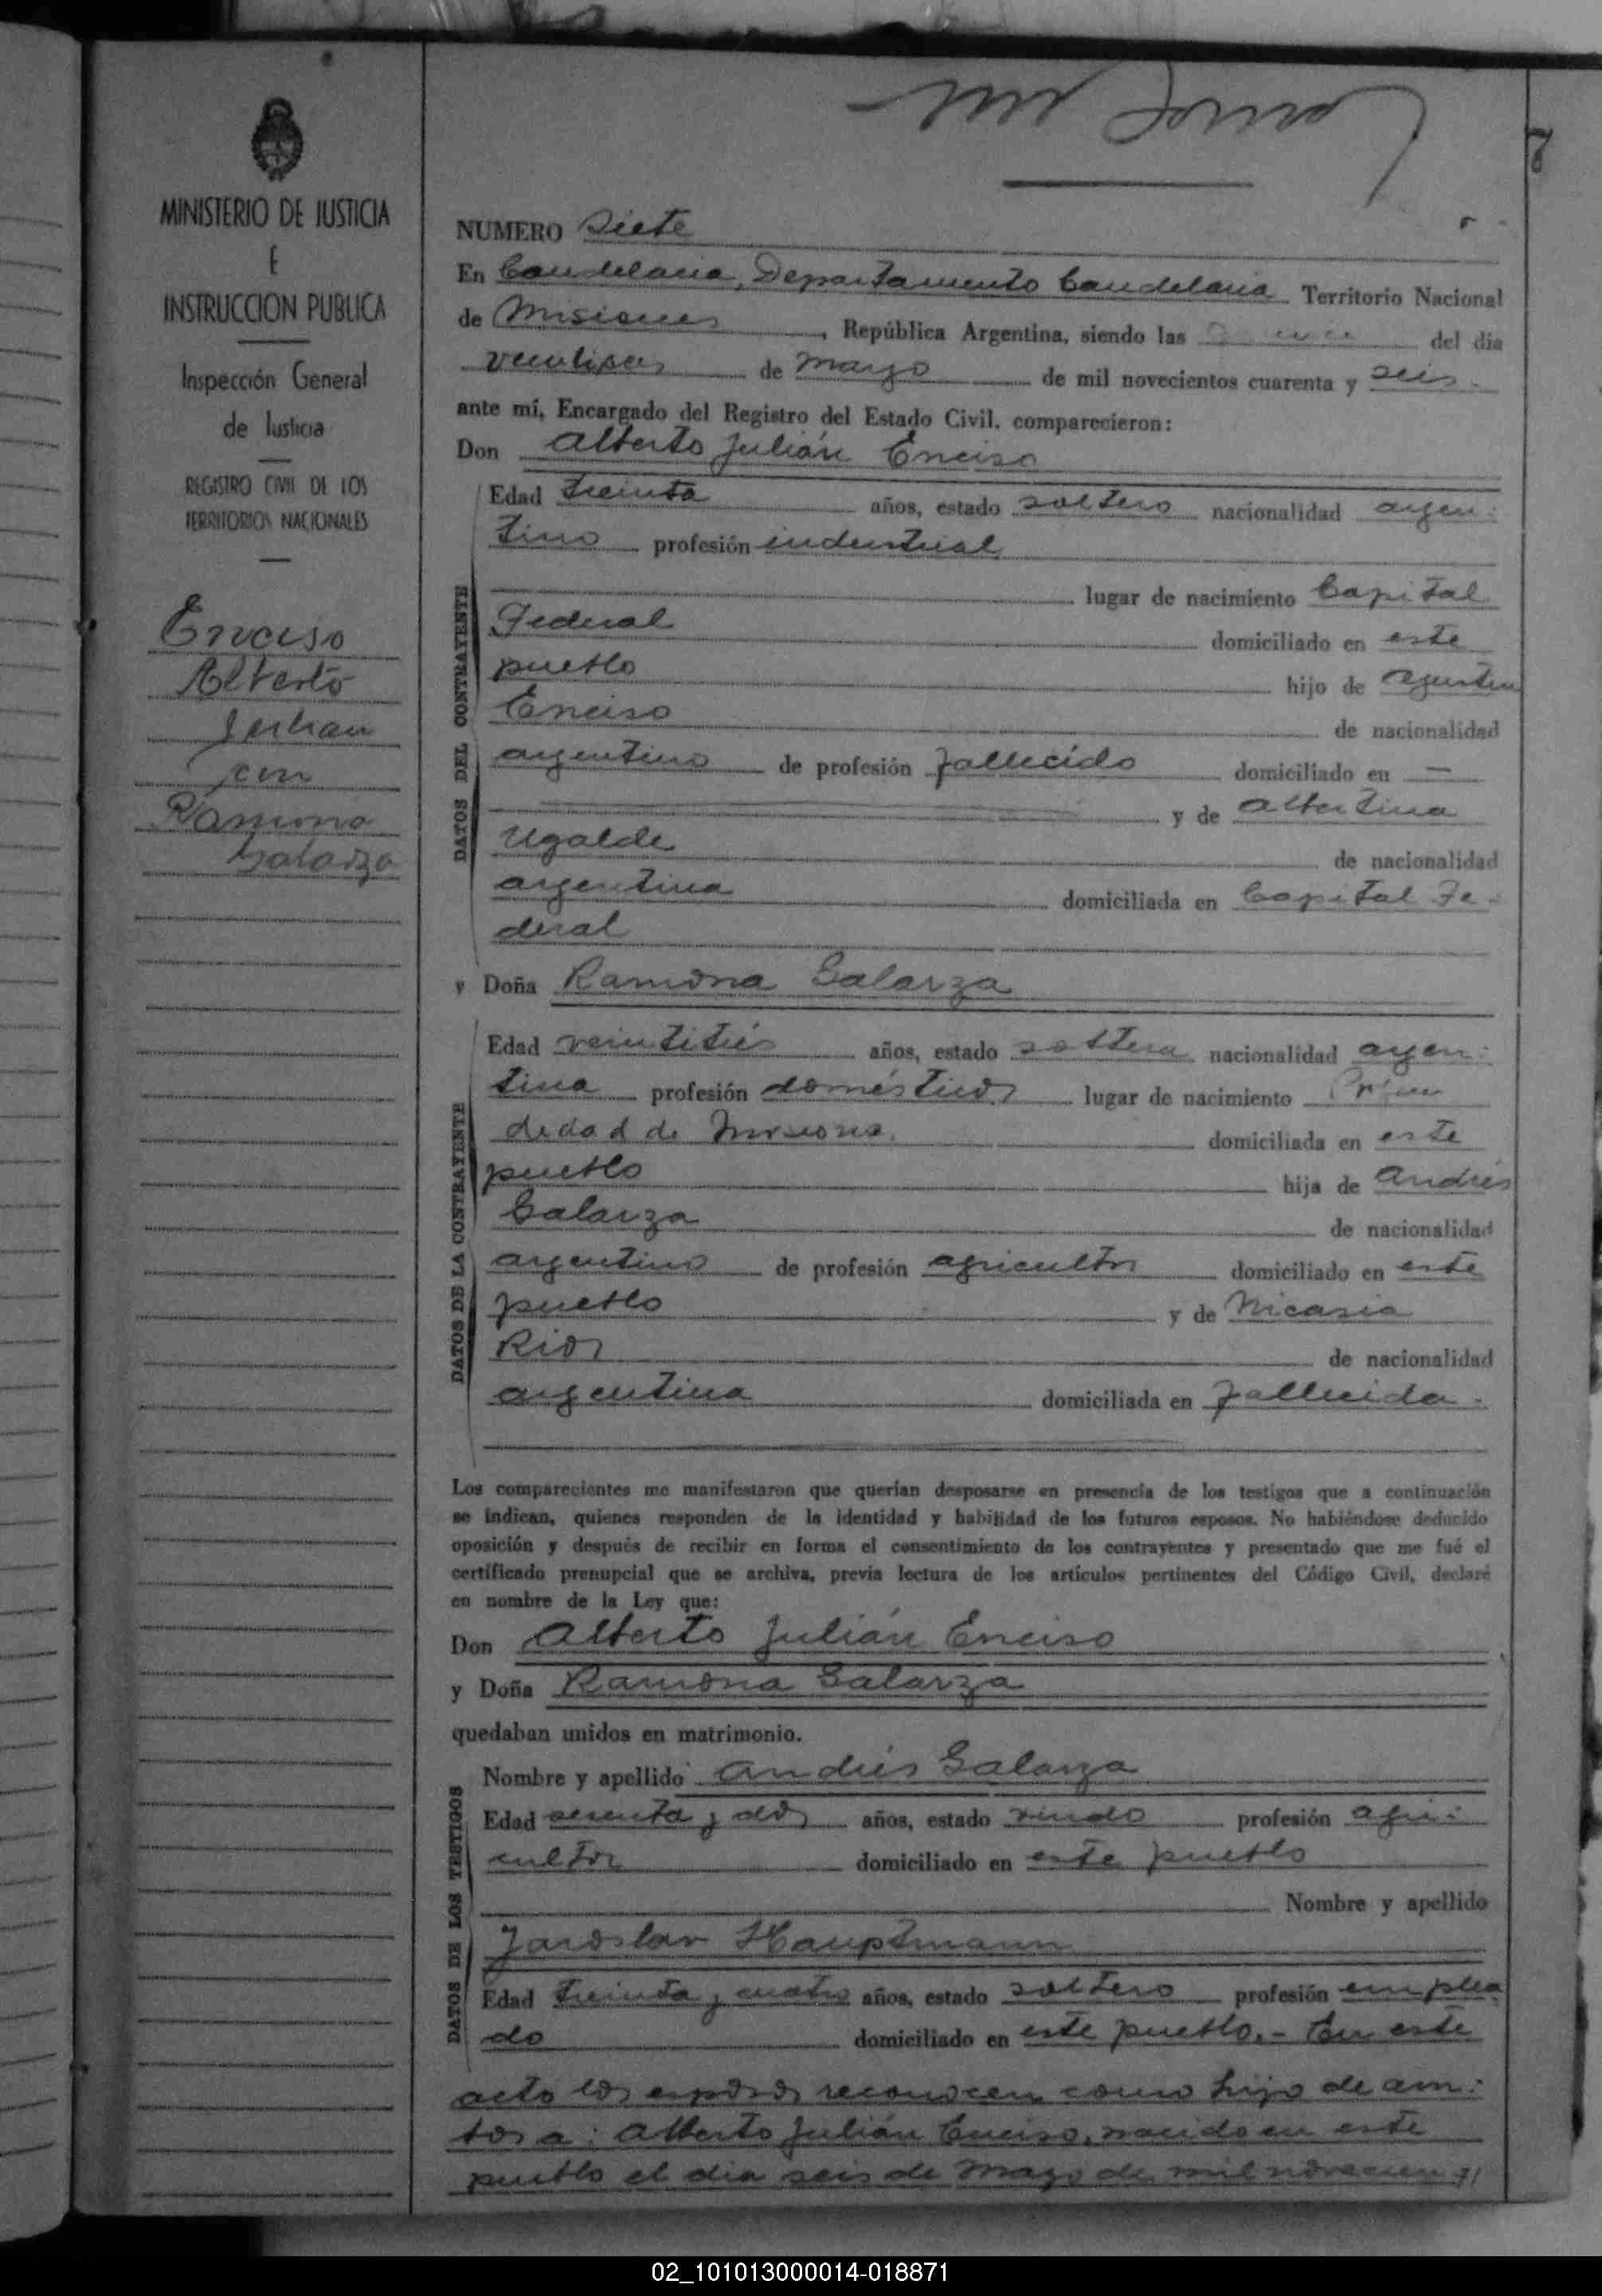 8
MINISTERIO DE JUSTICIA
E
INSTRUCCION PUBLICA
Inspección General
de Justicia
REGISTRO CIVIL DE LOS
TERRITORIOS NACIONALES
Enciso
Alberto
Julian
con
Ramona
Galarza
NUMERO Siete
En Candelaria, Departamento Candelaria Territorio Nacional
de Misiones, República Argentina, siendo las del dia
veintiseis de marzo de mil novecientos cuarenta y seis.
ante mí, Encargado del Registro del Estado Civil, comparecieron:
Don Alberto Julián Enciso
DATOS DEL CONTRAYENTE
Edad treinta años, estado soltero nacionalidad argen-
tino profesión industrial
lugar de nacimiento Capital
Federal domiciliado en este
pueblo hijo de Agustin
Enciso de nacionalidad
argentino de profesión fallecido domiciliado en —
y de Albertina
Ugalde de nacionalidad
argentina domiciliada en Capital Fe-
deral
y Doña Ramona Galarza
DATOS DE LA CONTRAYENTE
Edad veintitrés años, estado soltera nacionalidad argen-
tina profesión domésticos lugar de nacimiento
de Misiones. domiciliada en este
pueblo hija de Andrés
Galarza de nacionalidad
argentino de profesión agricultor domiciliado en este
pueblo y de Nicasia
Rios de nacionalidad
argentina domiciliada en fallecida.
Los comparecientes me manifestaron que querían desposarse en presencia de los testigos que a continuación
se indican, quienes responden de la identidad y habilidad de los futuros esposos. No habiéndose deducido
oposición y después de recibir en forma el consentimiento de los contrayentes y presentado que me fué el
certificado prenupcial que se archiva, previa lectura de los artículos pertinentes del Código Civil, declaré
en nombre de la Ley que:
Don Alberto Julián Enciso
y Doña Ramona Galarza
quedaban unidos en matrimonio.
DATOS DE LOS TESTIGOS
Nombre y apellido Andrés Galarza
Edad sesenta y dos años, estado viudo profesión agri-
cultor domiciliado en este pueblo
Nombre y apellido
Jaroslav Hauptmann
Edad treinta y cuatro años, estado soltero profesión emplea
do domiciliado en este pueblo.- En este
acto los esposos reconocen como hijo de am-
bos a: Alberto Julián Enciso, nacido en este
pueblo el dia seis de de mil novecien
02_101013000014-018871